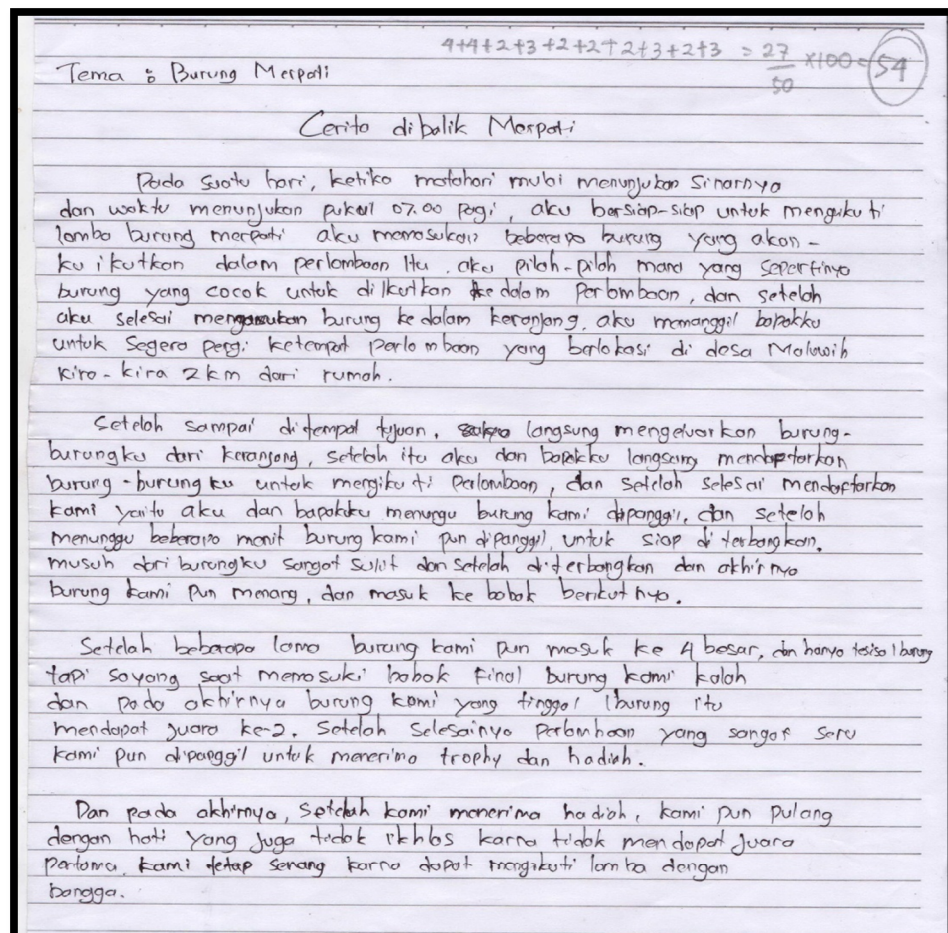 4+4+2+3+2+2+2+3+2+3 = 27/50 x100 = 54
Tema : Burung Merpati
Cerita dibalik Merpati
Pada suatu hari, ketika matahari mulai menunjukan Sinarnya
dan waktu menunjukan pukul 07.00 pagi, aku bersiap-siap untuk mengikuti
lomba burung merpati aku memasukan beberapa burung yang akan-
ku ikutkan dalam perlombaan Itu. aku pilah-pilah mana yang sepertinya
burung yang cocok untuk diIkutkan ke dalam Perlombaan, dan setelah
aku selesai mengasukan burung ke dalam keranjang, aku memanggil bapakku
untuk Segera pergi ketempat perlombaan yang berlokasi di desa Maluwih
kira-kira 2km dari rumah.
Setelah sampai ditempat tujuan, langsung mengeluarkan burung-
burungku dari keranjang, setelah itu aku dan bapakku langsung mendaptarkan
burung-burungku untuk mengikuti Perlombaan, dan setelah selesai mendaftarkan
kami yaitu aku dan bapakku menungu burung kami dipanggil, dan setelah
menunggu beberapa menit burung kami pun dipanggil, untuk siap diterbangkan.
musuh dari burungku sangat sulit dan setelah diterbangkan dan akhirnya
burung kami pun menang, dan masuk ke babak berikutnya.
Setelah beberapa lama burung kami pun masuk ke 4 besar, dan hanya tesisa 1 burung
tapi sayang saat memasuki babak Final burung kami kalah
dan pada akhirnya burung kami yang tinggal 1burung itu
mendapat juara ke-2. Setelah Selesainya Perlombaan yang sangat seru
kami pun dipanggil untuk menerima trophy dan hadiah.
Dan pada akhirnya, setelah kami menerima hadiah, kami pun pulang
dengan hati yang juga tidak ikhlas karna tidak mendapat juara
pertama. kami tetap senang karna dapat mengikuti lomba dengan
bangga.